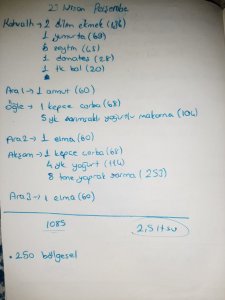 23 Nisan Perşembe
Kahvaltı → 2 dilim ekmek (136)
1 yumurta (69)
6 zeytin (45)
1 domates (28)
1 tk bal (20)
Ara1 → 1 armut (60)
Öğle → 1 kepçe çorba (68)
5 yk sarımsaklı yoğurtlu makarna (104)
Ara2 → 1 elma (60)
Akşam → 1 kepçe çorba (68)
4 yk yoğurt (114)
8 tane yaprak sarma (253)
Ara3 → 1 elma (60)
1085 2,5 lt su
. 250 bölgesel